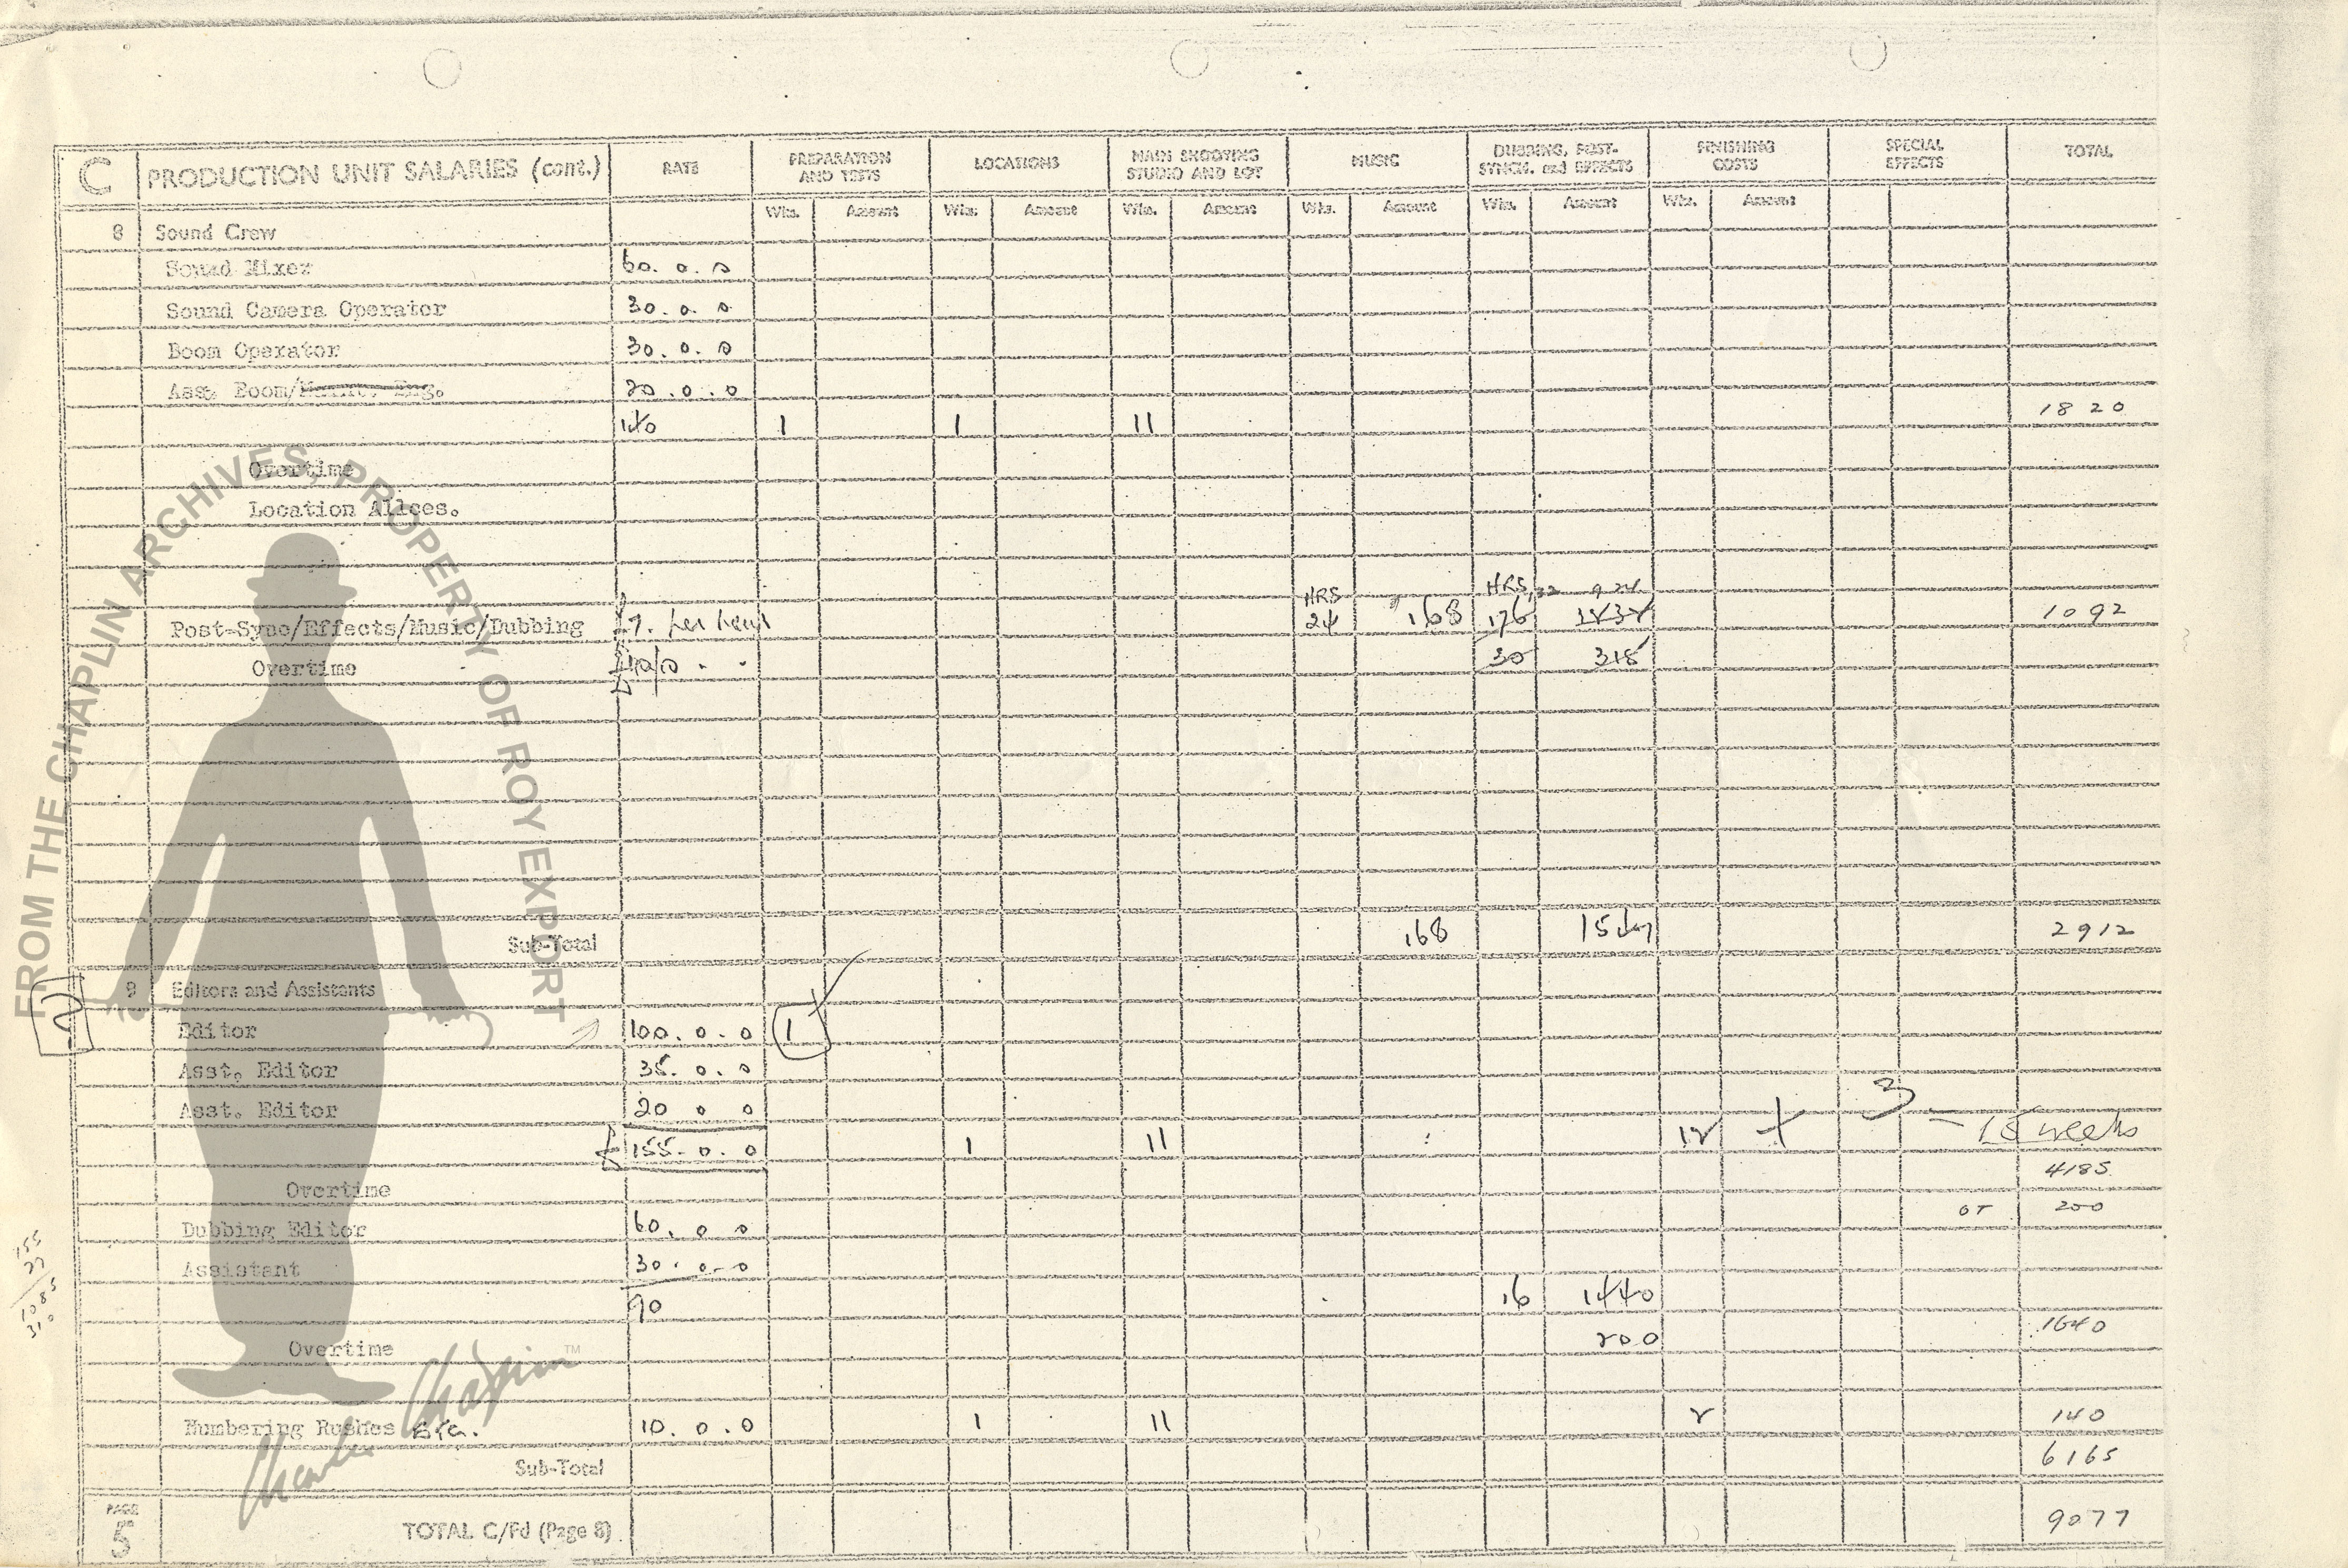 C PRODUCTION UNIT SALARIES (cont.) RATE PREPARATION AND TESTS LOCATIONS MAIN SHOOTING STUDIO AND LOT MUSIC DUBBING, POST-SYNCH. and EFFECTS FINISHING COSTS SPECIAL EFFECTS TOTAL
Wks. Amount Wks. Amount Wks. Amount Wks. Amount Wks. Amount Wks. Amount
8 Sound Crew
Sound Mixer 60. 0. 0
Sound Camera Operator 30. 0. 0
Boom Operator 30. 0. 0
Asst. Boom/ 20. 0. 0
140 1 1 11 1820
Overtime
Location Allces.
HRS HRS, 132 924
Post-Sync/Effects/Music/Dubbing £7. per hour 24 168 176 1232 1092
Overtime 30 315
Sub-Total 168 1547 2912
9 Editors and Assistants
Editor 100. 0. 0 1
Asst. Editor 35. 0. 0
Asst. Editor 20 0 0
£155. 0. 0 1 11 12 + 3 – 15 weeks
4185
Overtime OT 200
Dubbing Editor 60. 0 0
Assistant 30. 0-0
90 16 1440
Overtime 200 1640
155
27
1085
310
Numbering Rushes Etc. 10. 0. 0 1 11 2 140
Sub-Total 6165
PAGE 5 TOTAL C/Fd (Page 8) 9077
FROM THE CHAPLIN ARCHIVES, PROPERTY OF ROY EXPORT
Charles Chaplin™